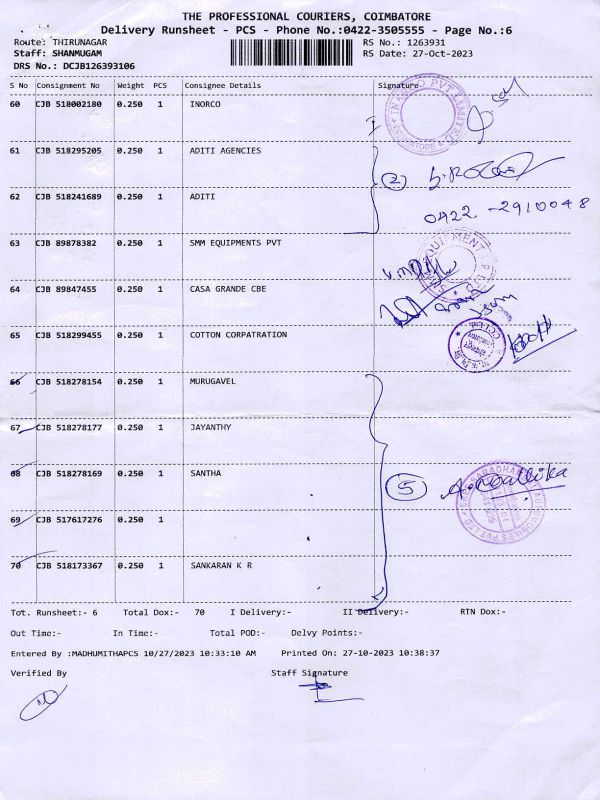 THE PROFESSIONAL COURIERS, COIMBATORE
Delivery Runsheet - PCS - Phone No.:0422-3505555 - Page No.:6
Route: THIRUNAGAR RS No.: 1263931
Staff: SHANMUGAM RS Date: 27-Oct-2023
DRS No.: DCJB126393106
S No Consignment No Weight PCS Consignee Details Signature
60 CJB 518002180 0.250 1 INORCO
61 CJB 518295205 0.250 1 ADITI AGENCIES
2
62 CJB 518241689 0.250 1 ADITI
0422 - 2910048
63 CJB 89878382 0.250 1 SMM EQUIPMENTS PVT
64 CJB 89847455 0.250 1 CASA GRANDE CBE
65 CJB 518299455 0.250 1 COTTON CORPATRATION
66 CJB 518278154 0.250 1 MURUGAVEL
67 CJB 518278177 0.250 1 JAYANTHY
68 CJB 518278169 0.250 1 SANTHA
5
69 CJB 517617276 0.250 1
70 CJB 518173367 0.250 1 SANKARAN K R
Tot. Runsheet:- 6 Total Dox:- 70 I Delivery:- II Delivery:- RTN Dox:-
Out Time:- In Time:- Total POD:- Delvy Points:-
Entered By :MADHUMITHAPCS 10/27/2023 10:33:10 AM Printed On: 27-10-2023 10:38:37
Verified By Staff Signature